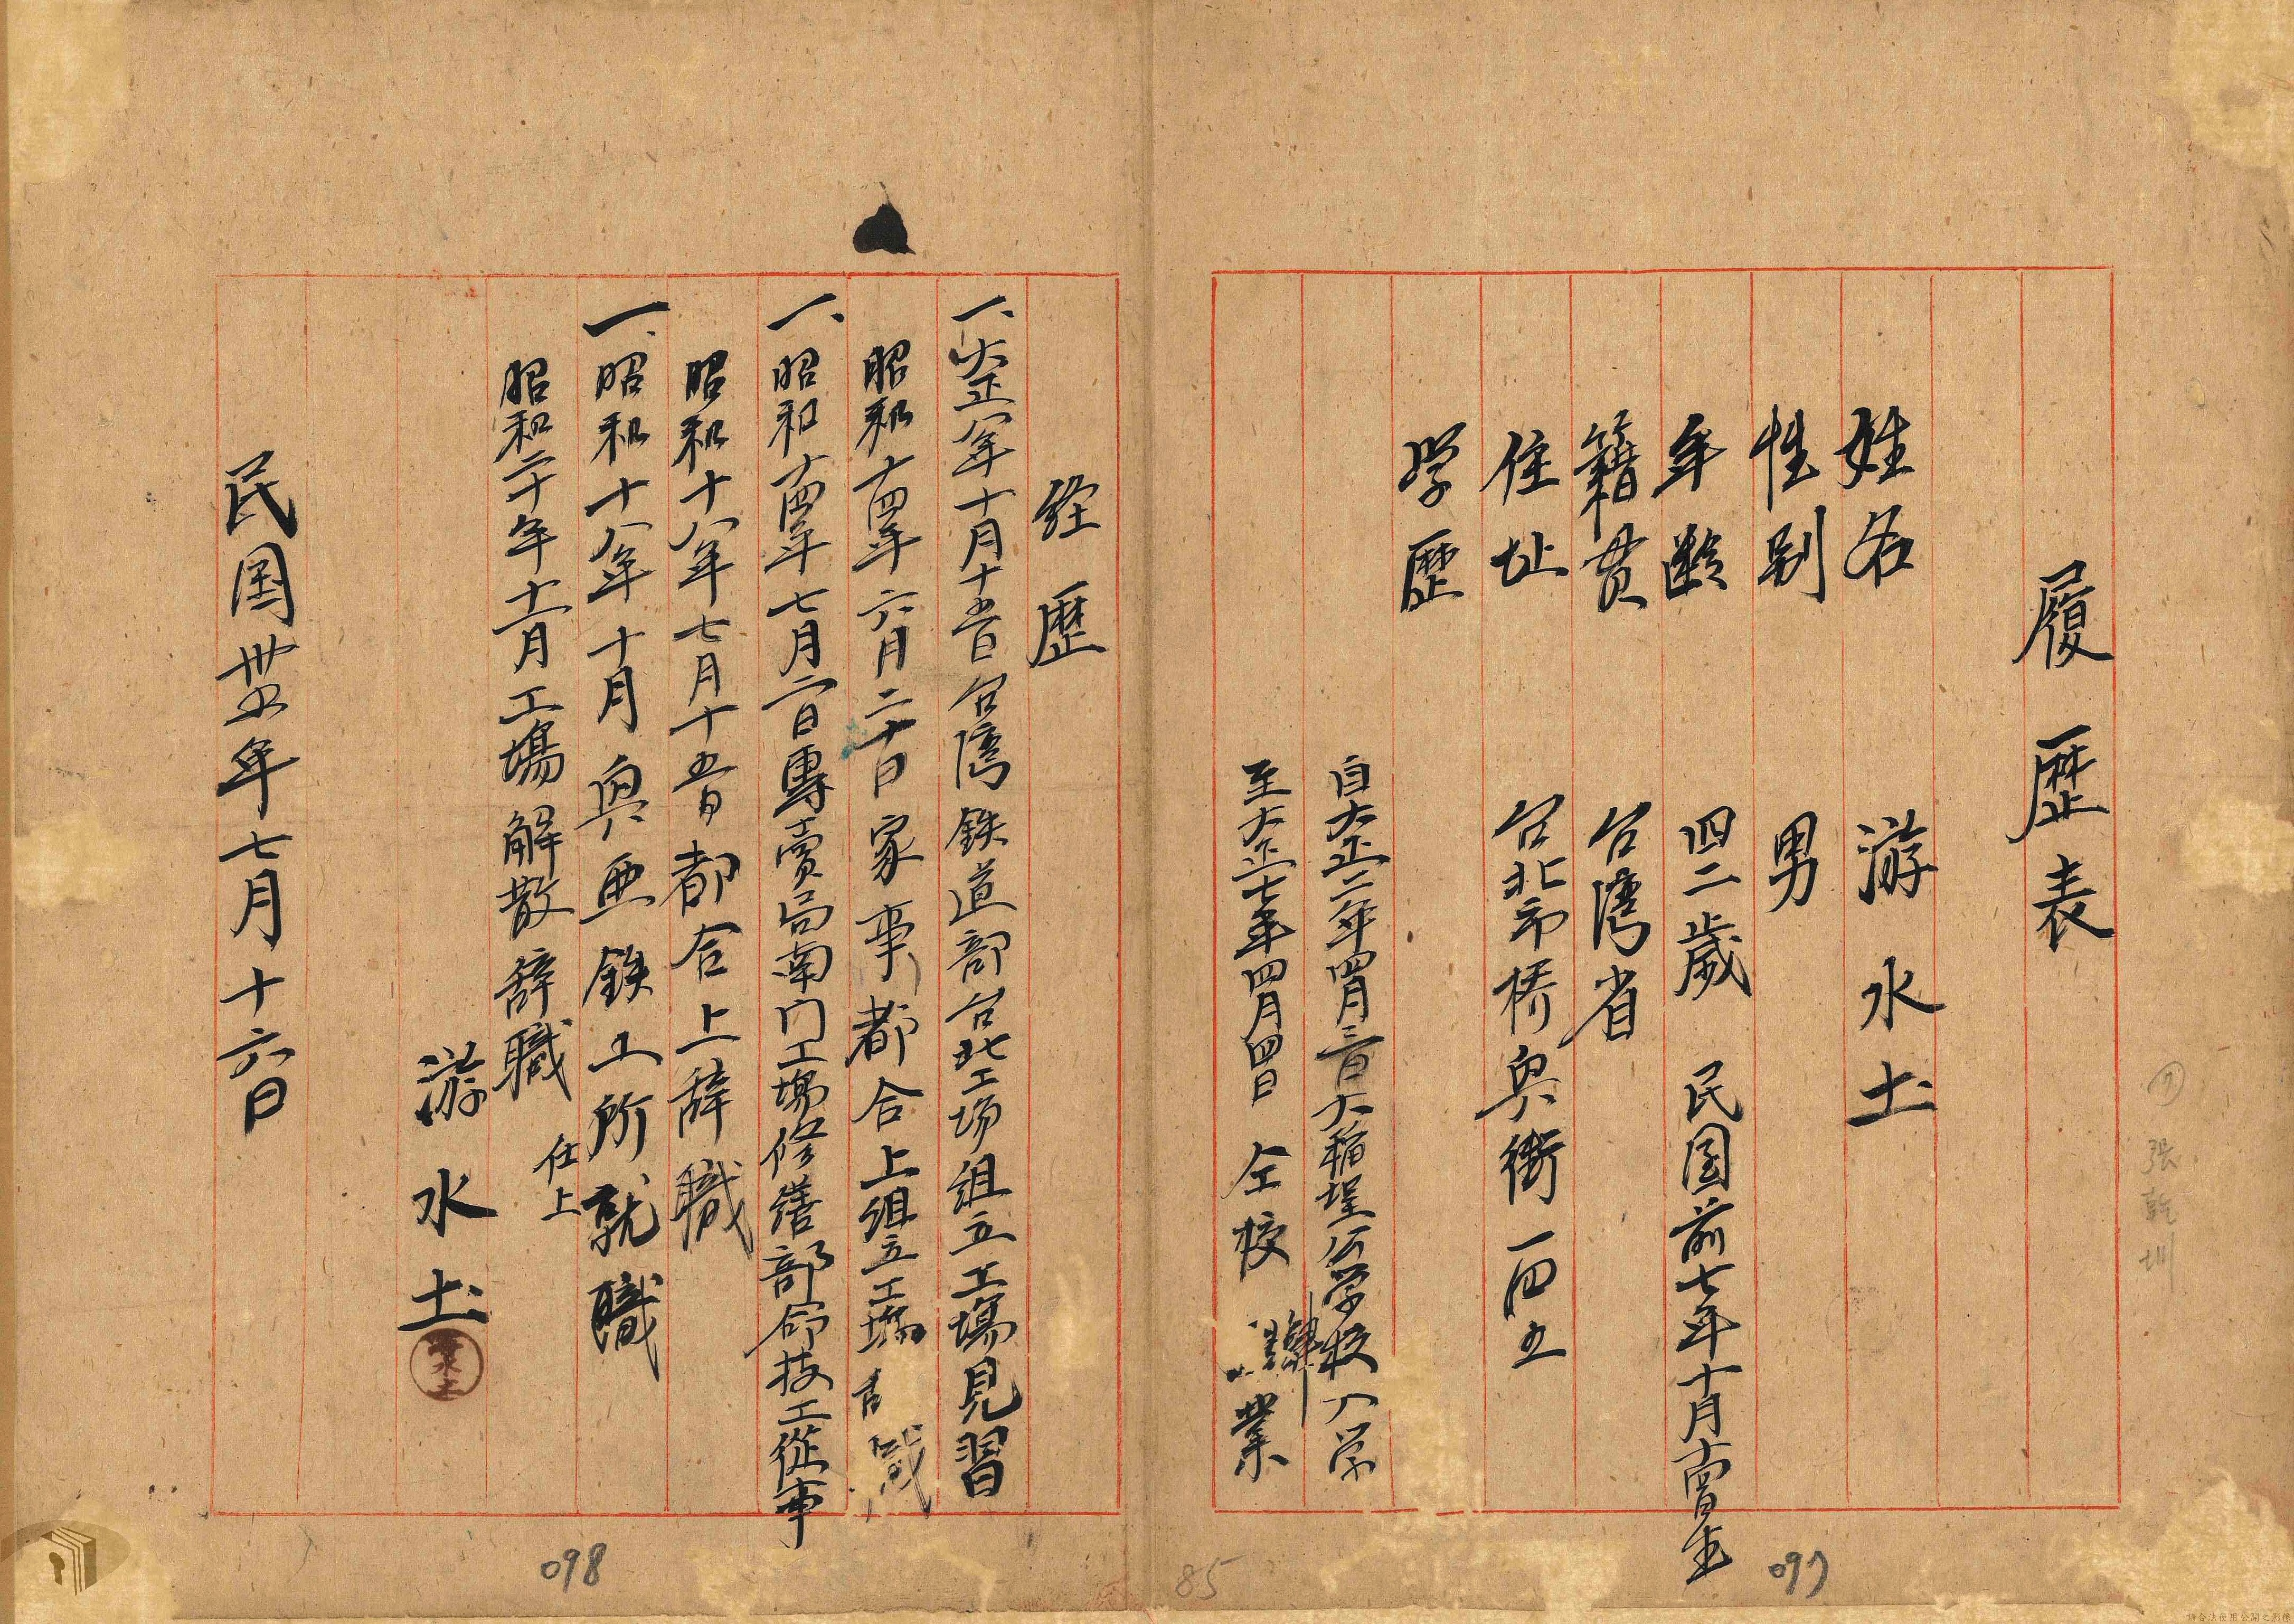 履歷表
姓名 游水土
性别 男
年齡 四二歲 民国前七年十月十四日生
籍貫 台湾省
住址 台北市橋奥街一四五
学歷
自大正二年四月三日大稲埕公学校入学
至大正七年四月四日仝校 業
经歷
一、大正八年十月十五日台湾鉄道部台北工场組立工場見習
昭和十四年六月二十日家事都合上組立工場
一、昭和十四年七月二日專賣局南门工場修繕部命技工從事
昭和十八年七月十五日都合上辞職
一、昭和十八年十月奥亜鉄工所就職
仕上
昭和二十年十二月工場解散辞職
游水土
水土
民国卅五年七月十六日
⑦ 張乾圳
097
85
098